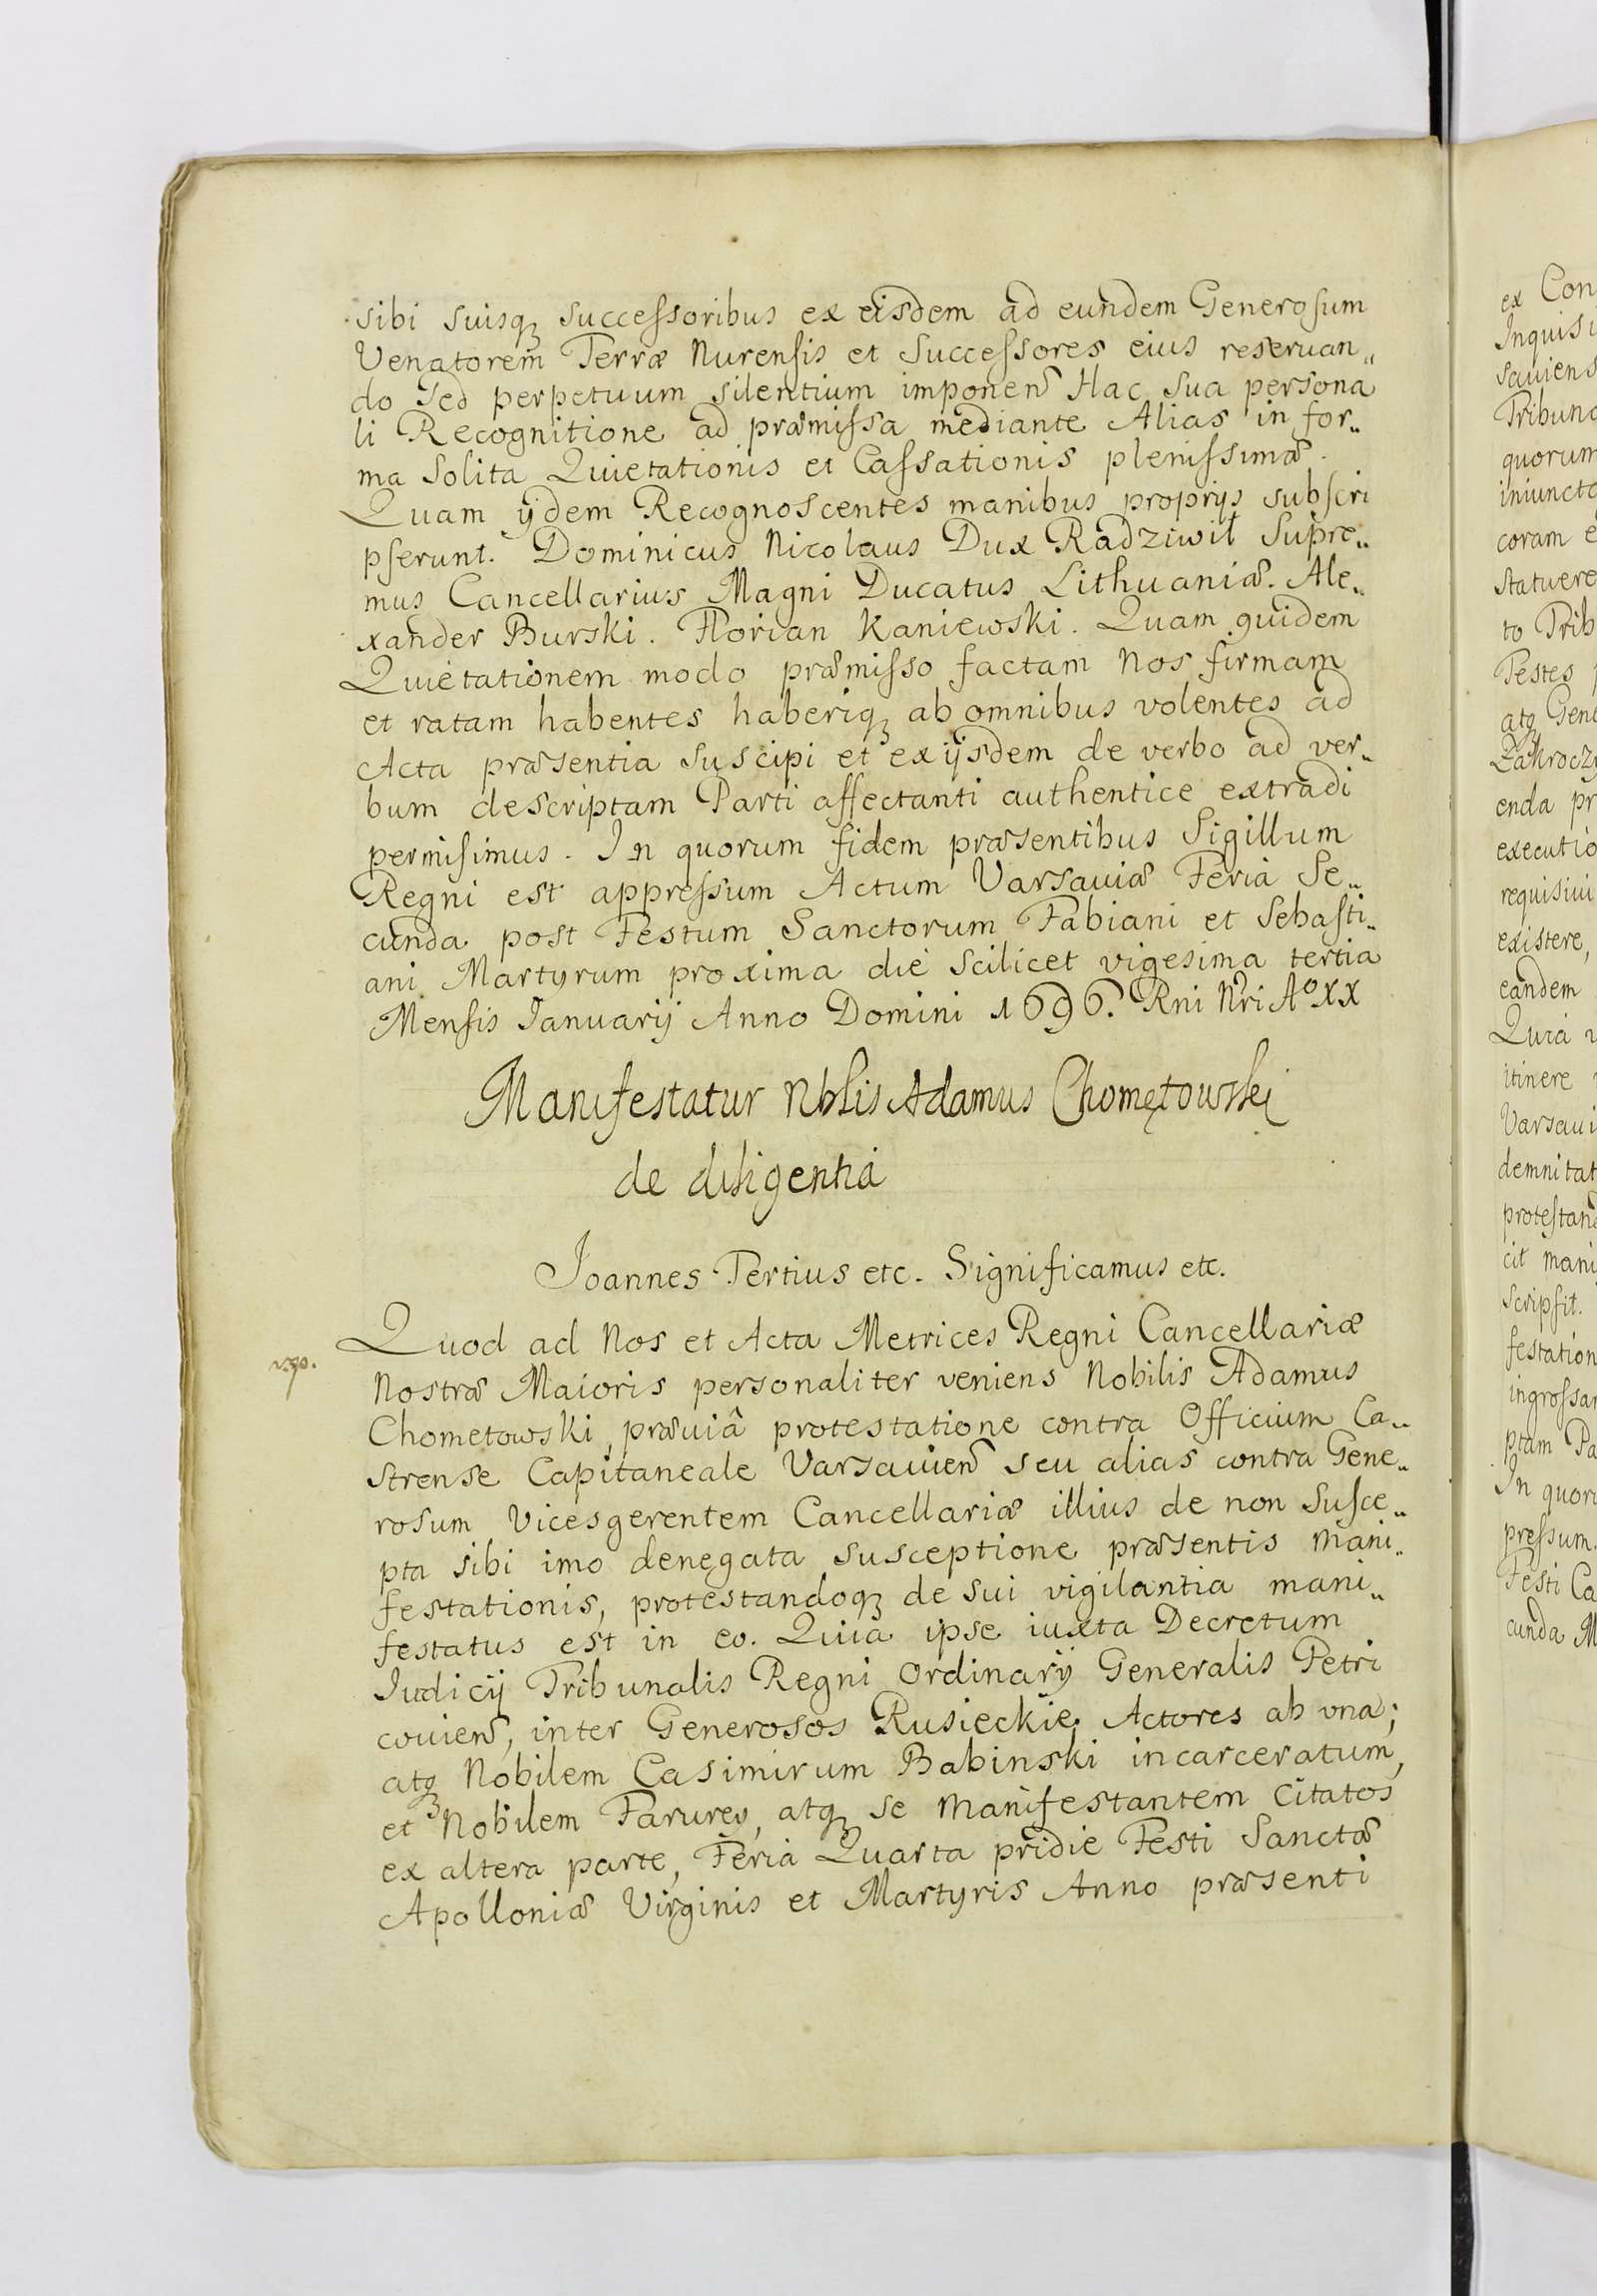 sibi suisqz successoribus ex eisdem ad eundem Generosum
Venatorem Terræ Nurensis et Successores eius reseruan„
do Sed perpetuum silentium imponen Hac sua persona
li Recognitione ad præmissa mediante Alias in for„
ma Solita Quietationis et Cassationis plenissimæ.
Quam ijdem Recognoscentes manibus proprijs subscri
pserunt. Dominicus Nicolaus Dux Radziwił Supre„
mus Cancellarius Magni Ducatus Lithuaniæ. Ale„
xander Burski. Florian Kaniewski. Quam quidem
Quietationem modo præmisso factam Nos firmam
et ratam habentes haberiqz ab omnibus volentes ad
Acta præsentia suscipi et ex ijsdem de verbo ad ver„
bum descriptam Parti affectanti authentice extradi
permisimus. In quorum fidem præsentibus Sigillum
Regni est appressum Actum Varsauiæ Feria Se„
cunda post Festum Sanctorum Fabiani et Sebasti„
ani Martyrum proxima die scilicet vigesima tertia
Mensis Januarij Anno Domini 1696. Rni Nri Aº XX
Manifestatur Nblis Adamus Chomętowski
de diligentia
Joannes Tertius etc. Significamus etc.
Quod ad Nos et Acta Metrices Regni Cancellariæ
Nostræ Maioris personaliter veniens Nobilis Adamus
Chometowski, præuiâ protestatione contra Officium Ca„
strense Capitaneale Varsauien seu alias contra Gene„
rosum Vicesgerentem Cancellariæ illius de non susce„
pta sibi imo denegata susceptione præsentis Mani„
festationis, protestandoqz de sui vigilantia mani„
festatus est in eo. Quia ipse iuxta Decretum
Iudicij Tribunalis Regni Ordinarij Generalis Petri
couien, inter Generosos Rusieckie Actores ab vna;
atqz Nobilem Casimirum Babinski incarceratum,
et Nobilem Farurey, atqz se Manifestantem Citatos
ex altera parte, Feria Quarta pridie Festi Sanctæ
Apolloniæ Virginis et Martyris Anno præsenti
ex Con
Inquisi
sauiens
Tribuna
quorum
iniuncta
coram e
statuere
to Trib
Testes
atqz Gen
Zakroczy
enda pr
executio
requisiui
existere,
eandem
Quia
itinere
Varsaui
demnitat
protestan
cit Mani
scripsit.
festation
ingrossar
ptam Pa
In quor
pressum.
Festi Ca
cunda M